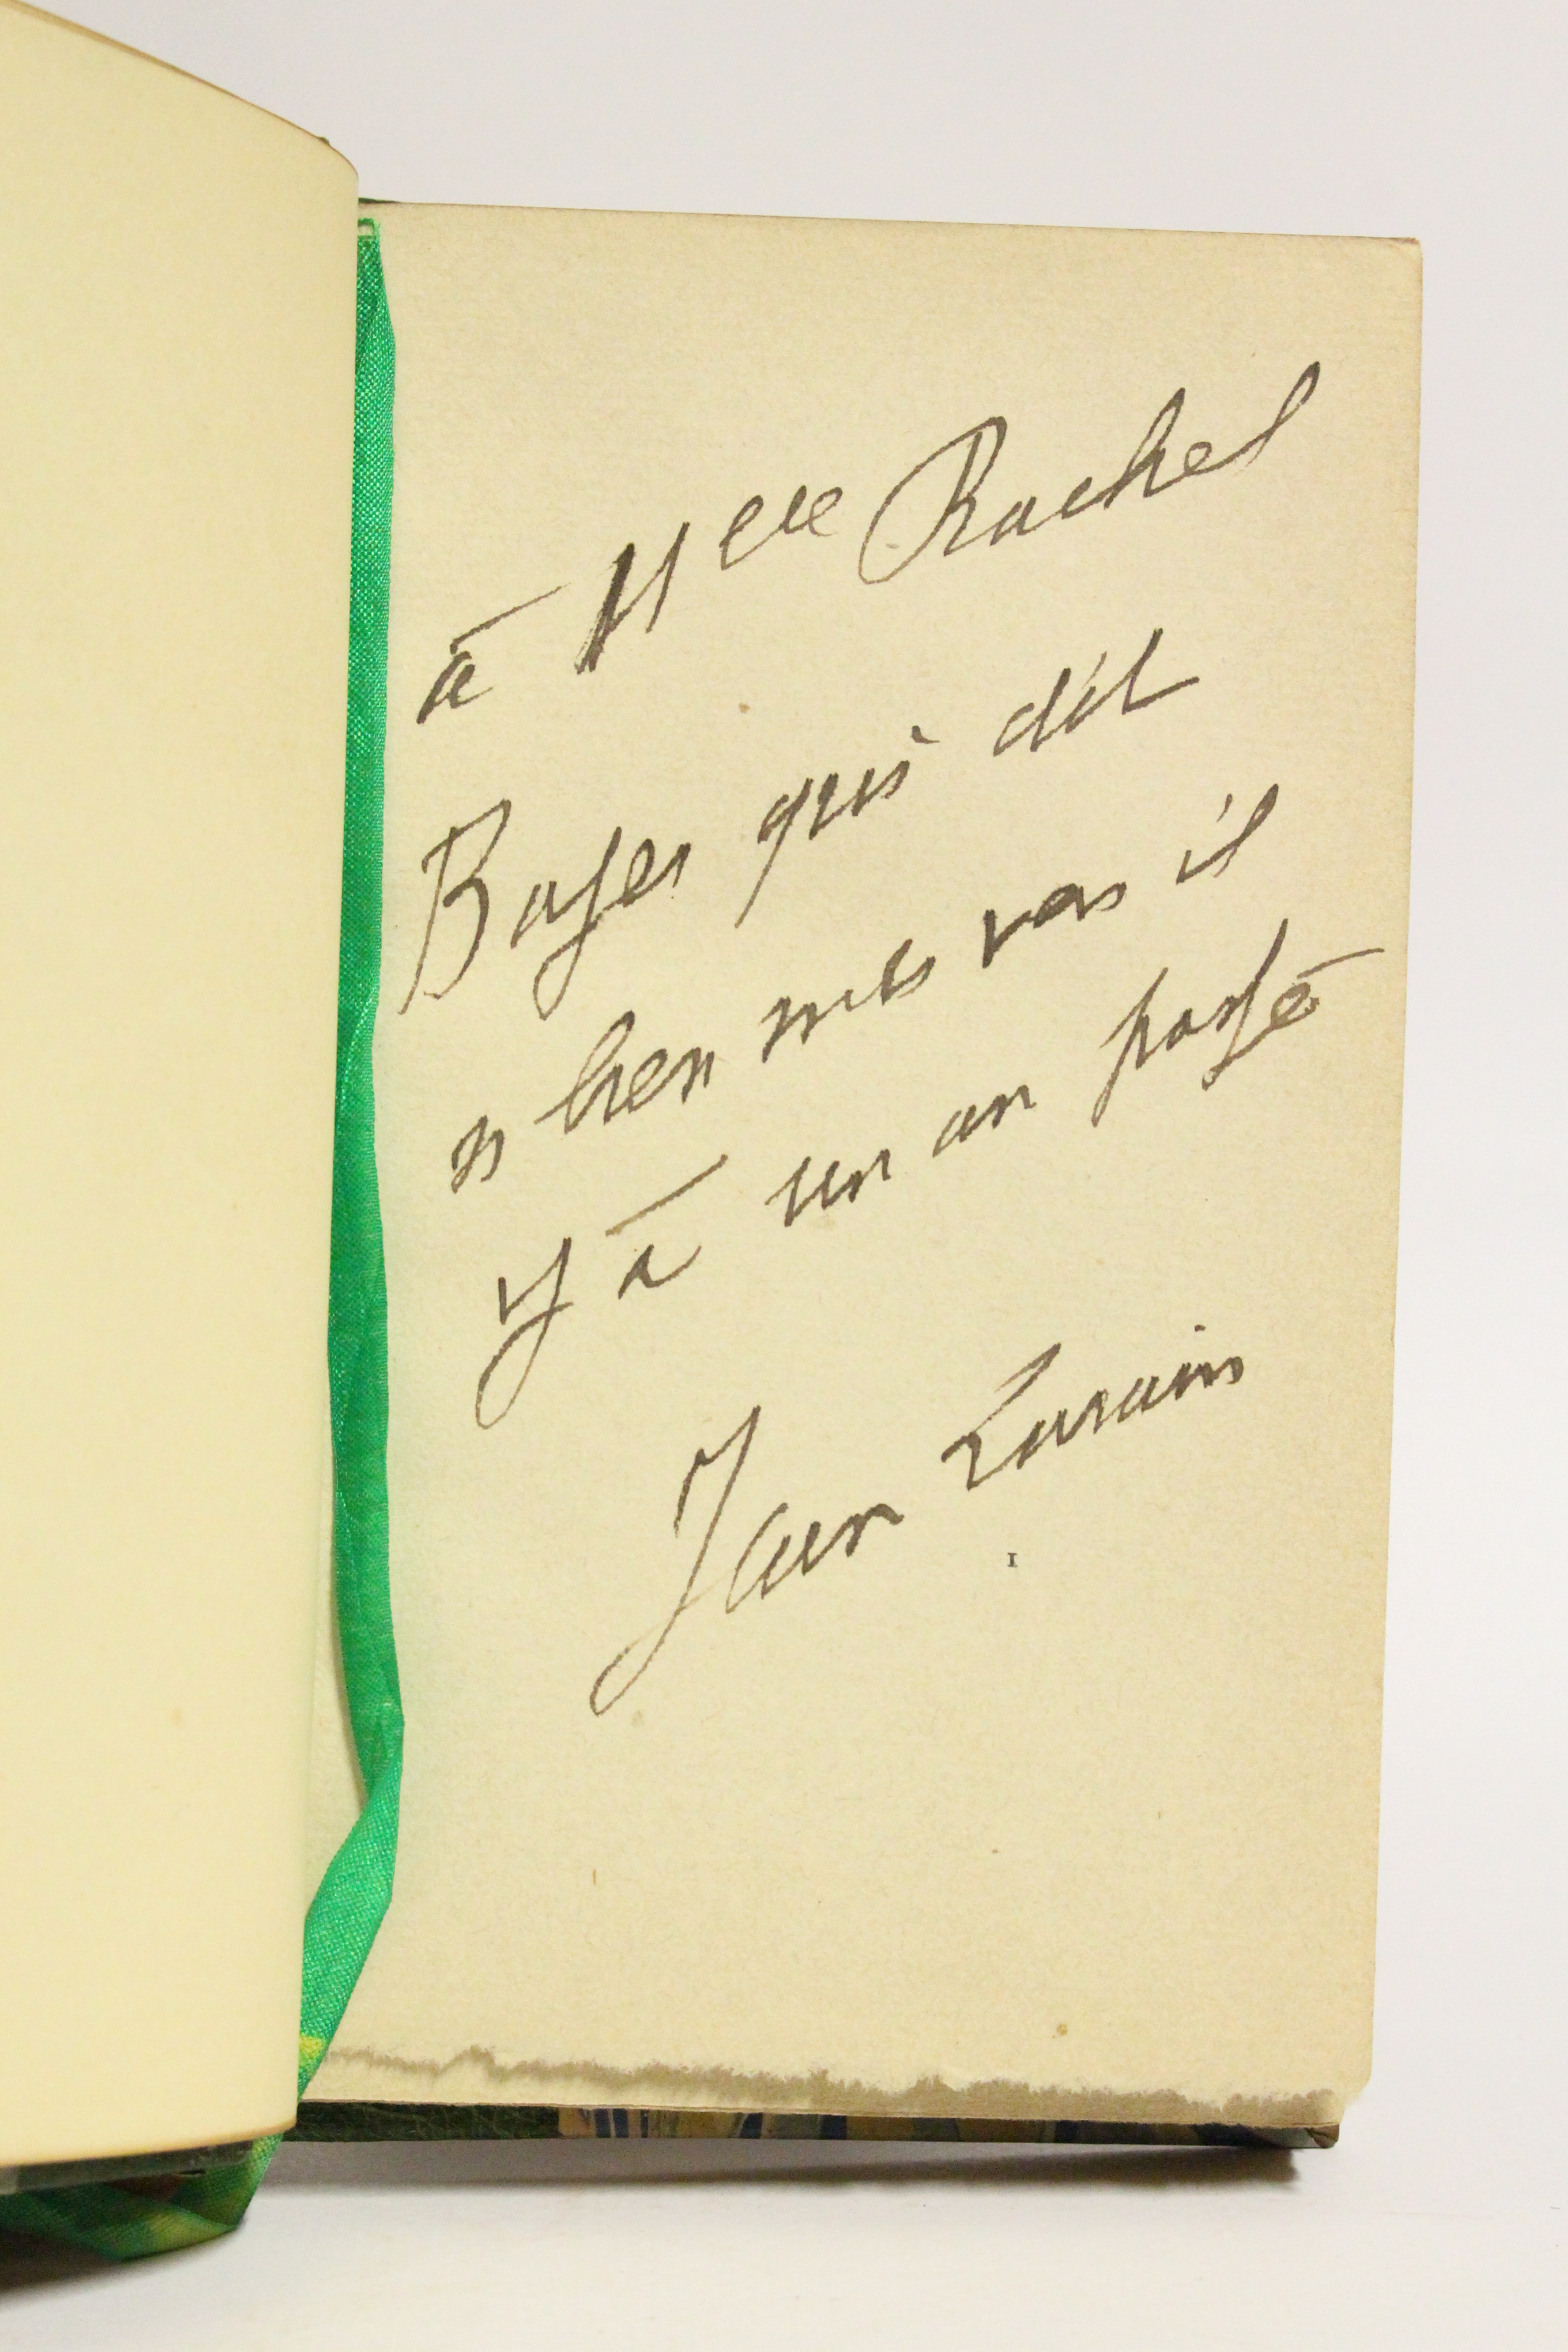 à Mlle Rachel
Boyer qui dit
si bien mes vers il
y a un an passé
Jean Lorrain
1